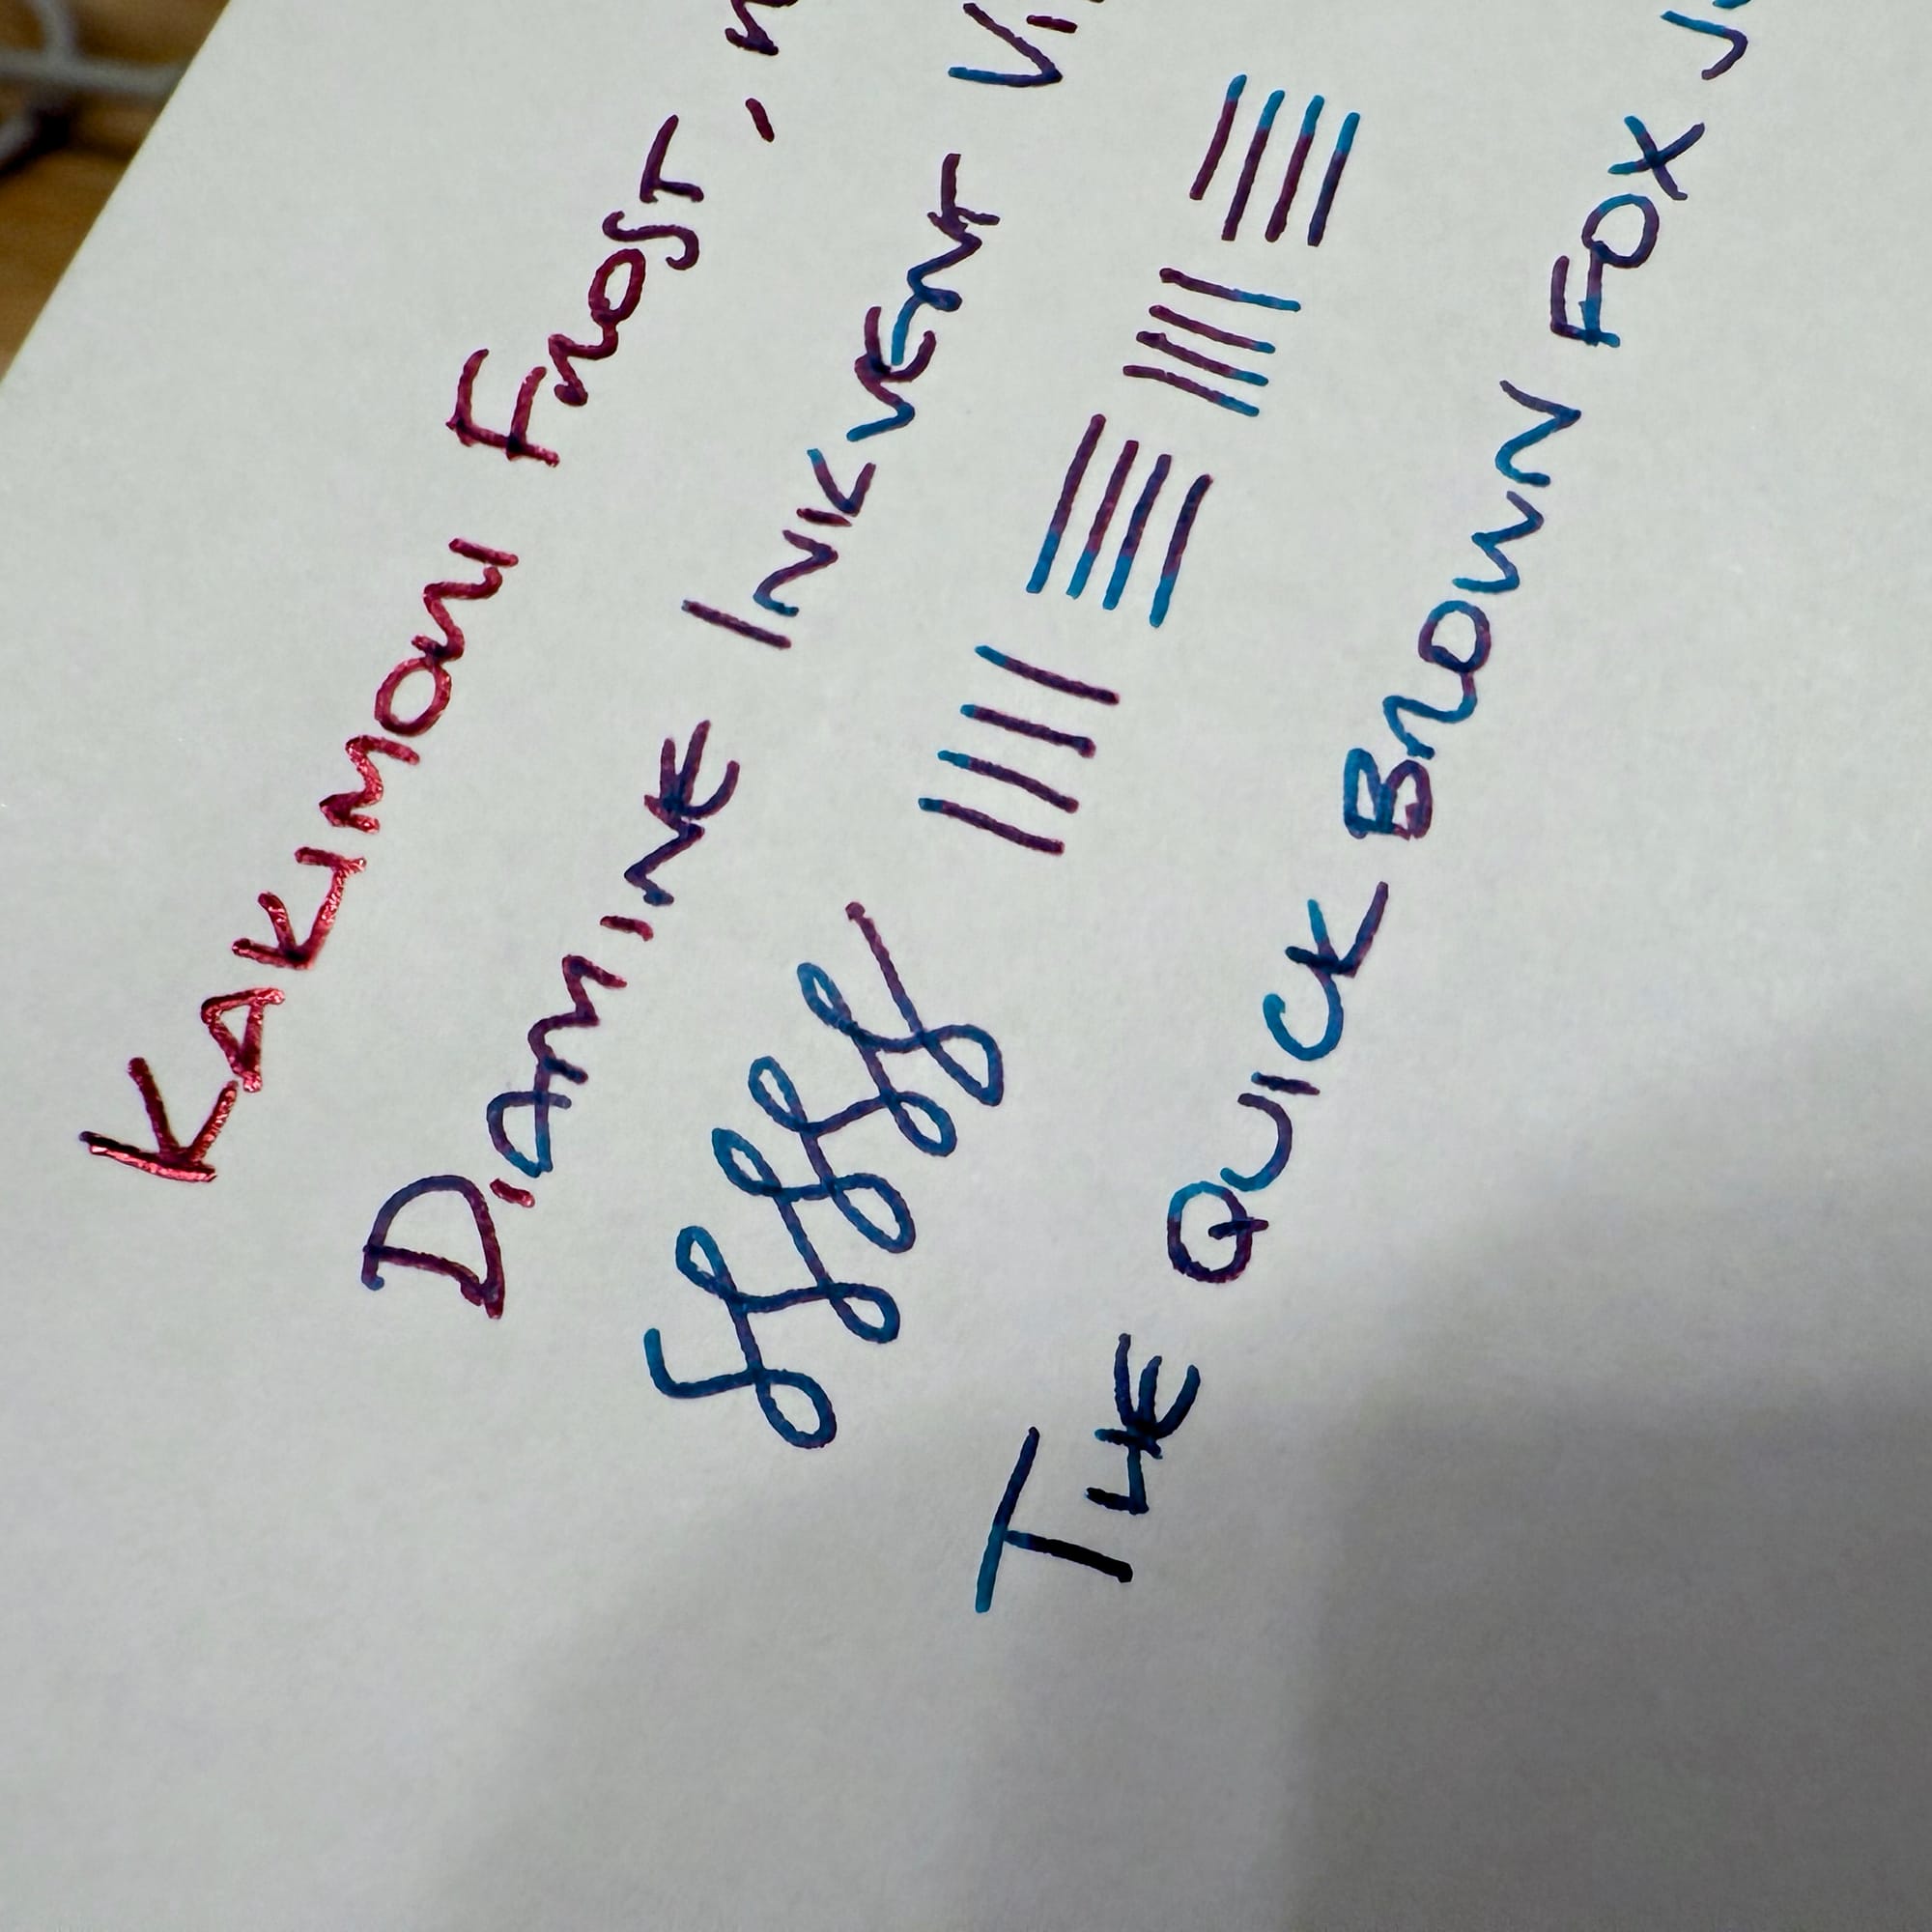 KAKIMORI FROST,
DIAMINE INKVENT
THE QUICK BROWN FOX